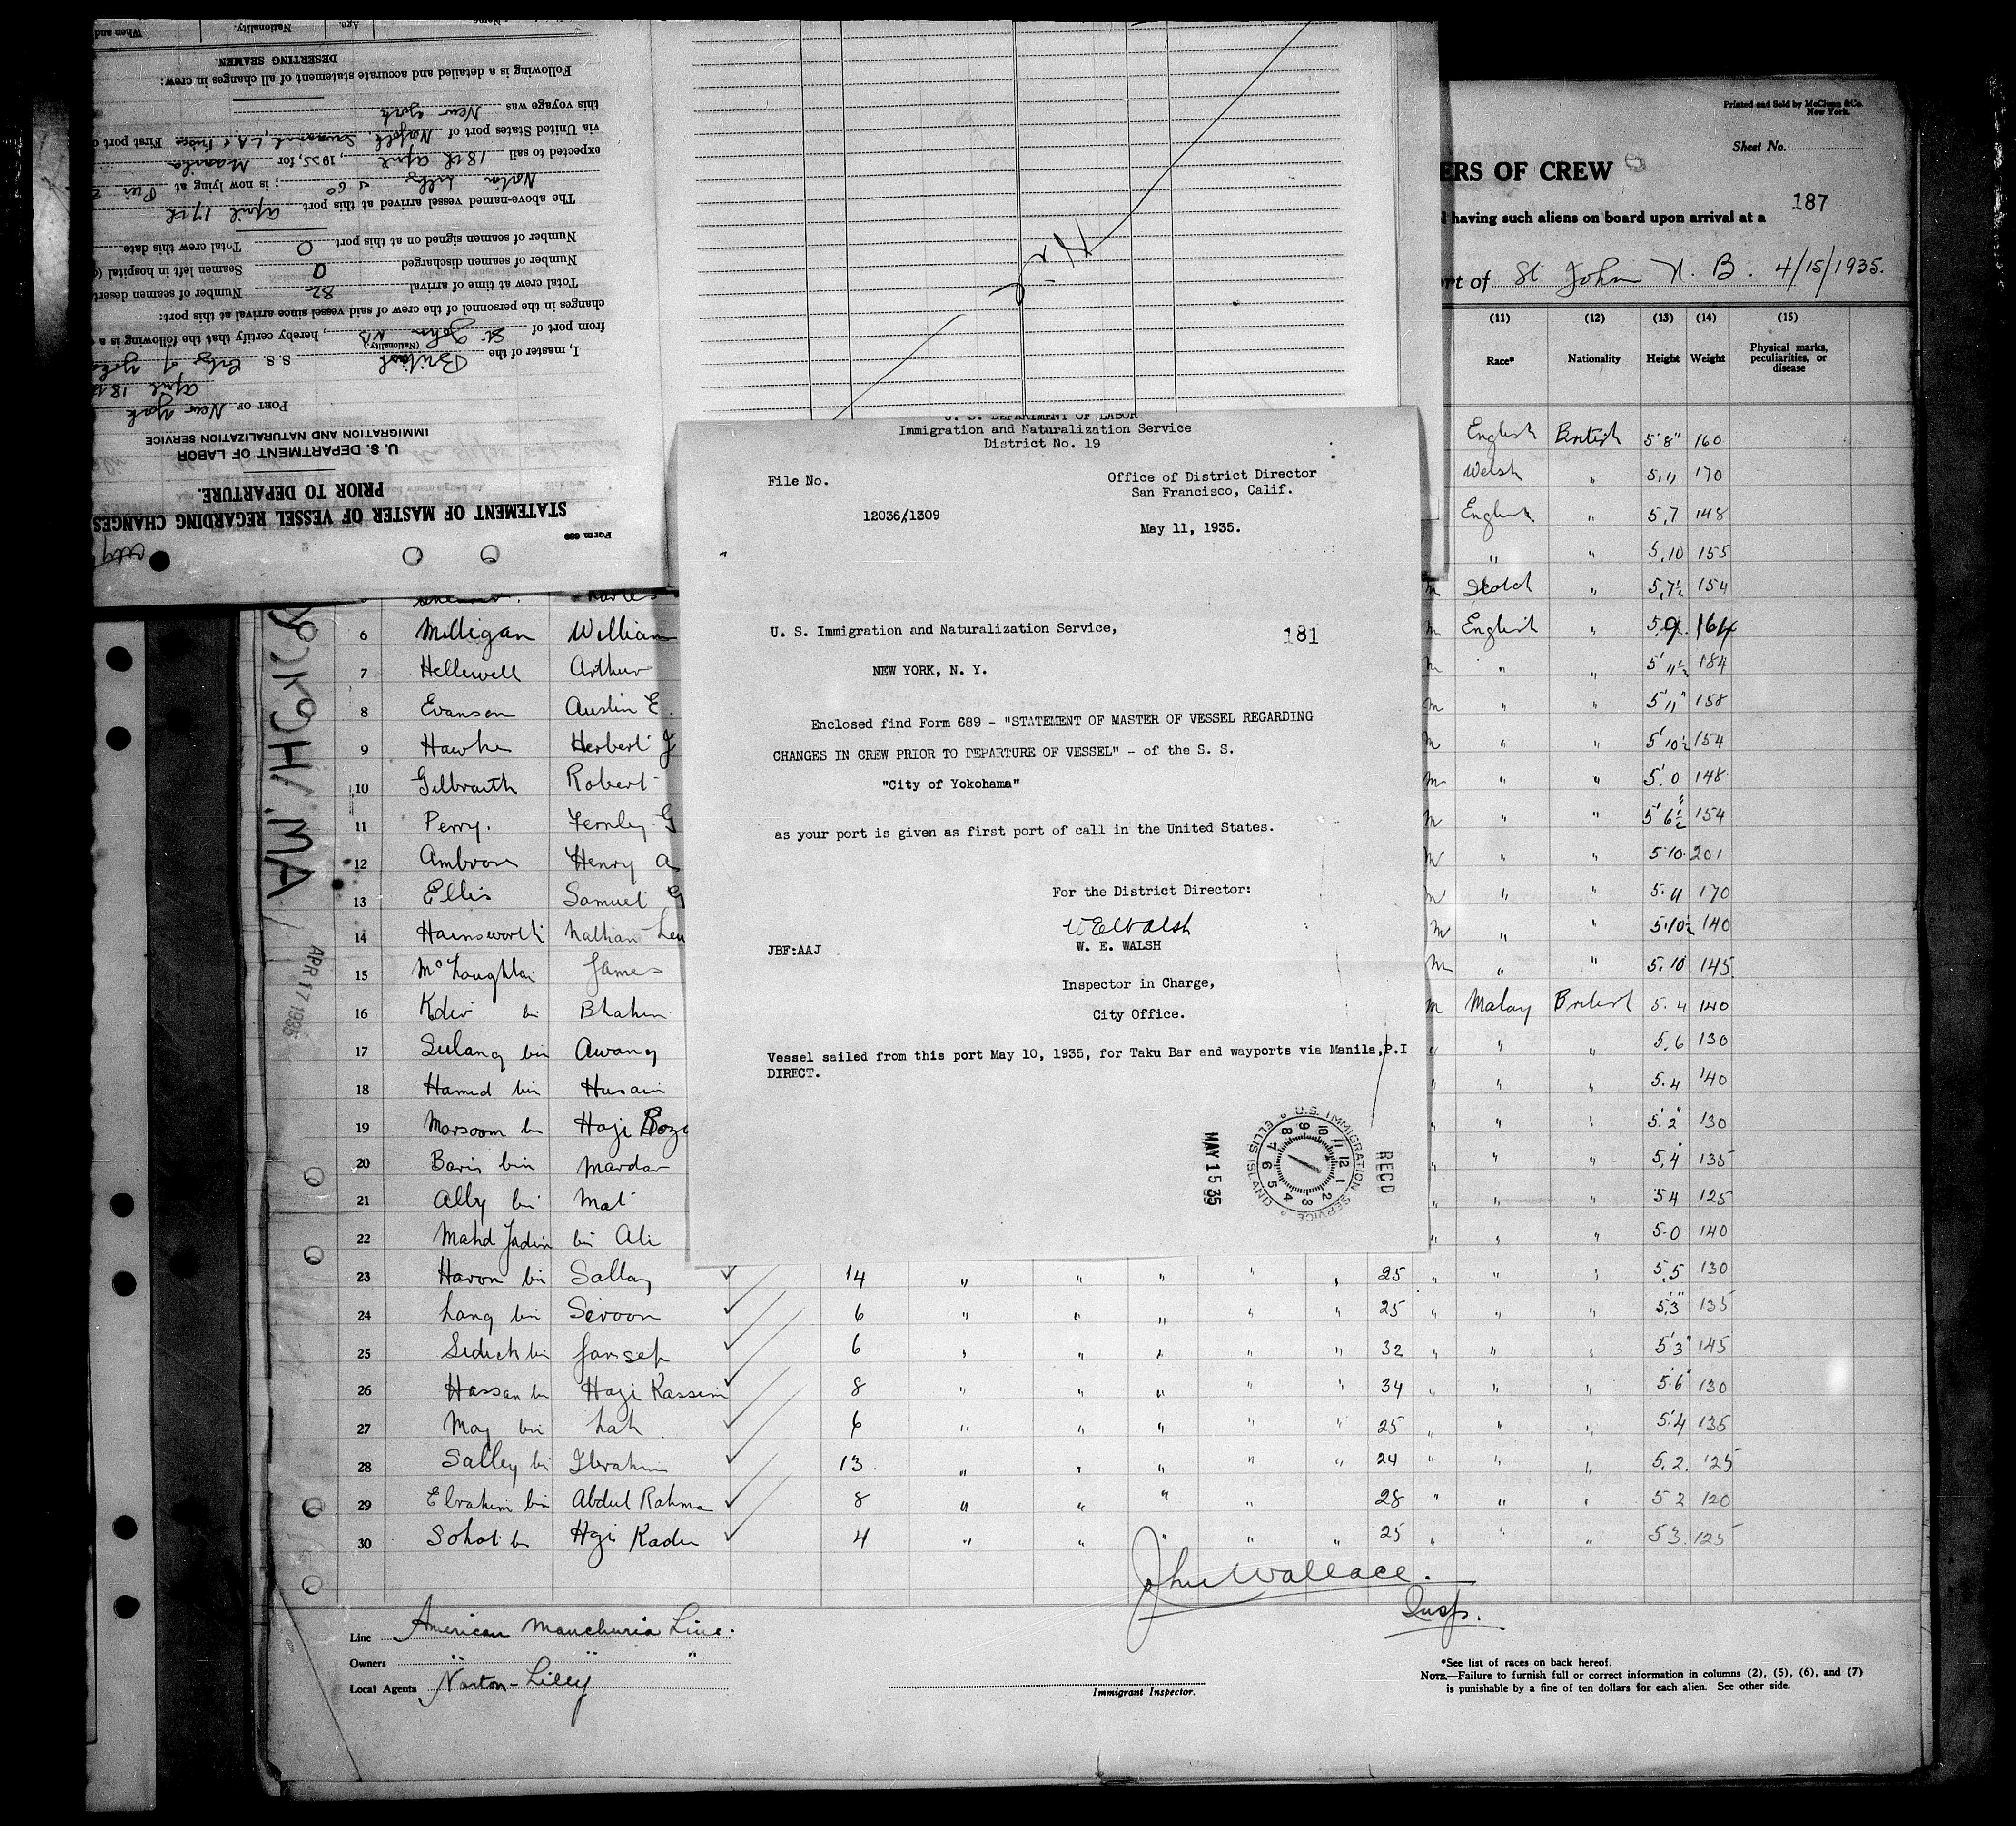 Name
Age.
Nationality.
When and
DESERTING SEAMEN.
Following is a detailed and accurate statement of all changes in crew:
this voyage was New York
via United States port of Norfolk Savannah L.A. & Frisco First port
expected to sail 18th April, 1935, for Manila
Norton Lilly ; is now lying at Pier
The above-named vessel arrived at this port April 17th
Number of seamen signed on at this port 0 Total crew this date
Number of seamen discharged 0 Seamen left in hospital
Total crew at time of arrival 82 Number of seamen
changes in the personnel of the crew of said vessel since arrival at this port:
from port of St. John NB, hereby certify that the following is a
(Nationality)
I, master of the British S. S. City of
April 18th
PORT OF New York
IMMIGRATION AND NATURALIZATION SERVICE
U. S. DEPARTMENT OF LABOR
PRIOR TO DEPARTURE.
STATEMENT OF MASTER OF VESSEL REGARDING CHANGES
Form 689
Printed and Sold by McClunn & Co.
New York.
Sheet No.
ERS OF CREW
187
having such aliens on board upon arrival at a
rt of St John N. B. 4/15/1935.
(11) (12) (13) (14) (15)
Race* Nationality Height Weight Physical marks, peculiarities, or disease
U. S. DEPARTMENT OF LABOR
Immigration and Naturalization Service
District No. 19
File No.
12036/1309
Office of District Director
San Francisco, Calif.
May 11, 1935.
U. S. Immigration and Naturalization Service,
181
NEW YORK, N. Y.
Enclosed find Form 689 - "STATEMENT OF MASTER OF VESSEL REGARDING
CHANGES IN CREW PRIOR TO DEPARTURE OF VESSEL" - of the S. S.
"City of Yokohama"
as your port is given as first port of call in the United States.
For the District Director:
W E Walsh
W. E. WALSH
JBF:AAJ
Inspector in Charge,
City Office.
Vessel sailed from this port May 10, 1935, for Taku Bar and wayports via Manila,P.I
DIRECT.
MAY 15 35
U.S. IMMIGRATION SERVICE ELLIS ISLAND
1 2 3 4 5 6 7 8 9 10 11 12
RECD
YOKOHAMA
APR 17 1935
English British 5'8" 160
Welsh " 5,11 170
English " 5,7 148
" " 5,10 155
m Scotch " 5,7½ 154
6 Milligan William m English " 5,9 164
7 Hellewell Arthur m " " 5'11½ 184
8 Evanson Austin E. m " " 5'11" 158
9 Hawke Herbert J m " " 5'10½ 154
10 Gilbraith Robert m " " 5'0 148
11 Perry. Fernley G m " " 5'6½" 154
12 Ambrose Henry A m " " 5'10 201
13 Ellis Samuel G m " " 5.11 170
14 Hainsworth Nathan m " " 5'10½ 140
15 McLoughlin James m " " 5.10 145
16 bin m Malay British 5.4 140
17 Sulang bin Awang " " " 5.6 130
18 Hamid bin Husain " " " 5.4 140
19 Marsoom bin Haji " " " 5'2" 130
20 Baris bin Mardan " " " 5,4 135
21 Ally bin Mat " " " 5 4 125
22 Mahd Jadin bin Ali " " " 5.0 140
23 Haron bin Sallay 14 " " " " " 25 " " " 5.5 130
24 Lang bin Siroon 6 " " " " " 25 " " " 5'3" 135
25 Sidick bin Jansep 6 " " " " " 32 " " " 5'3" 145
26 Hassan bin Haji Kassim 8 " " " " " 34 " " " 5'6" 130
27 May bin Lah 6 " " " " " 25 " " " 5'4 135
28 Salley bin Ibrahim 13 " " " " " 24 " " " 5.2. 125
29 Ebrahim bin Abdul Rahma 8 " " " " 28 " " " 5 2 120
30 Sohot bin Haji Kader 4 " " " " " 25 " " " 5 3 125
John Wallace.
Insp.
Line American Manchuria Line.
Owners " " "
Local Agents Norton-Lilly
Immigrant Inspector.
*See list of races on back hereof.
NOTE.—Failure to furnish full or correct information in columns (2), (5), (6), and (7)
is punishable by a fine of ten dollars for each alien. See other side.